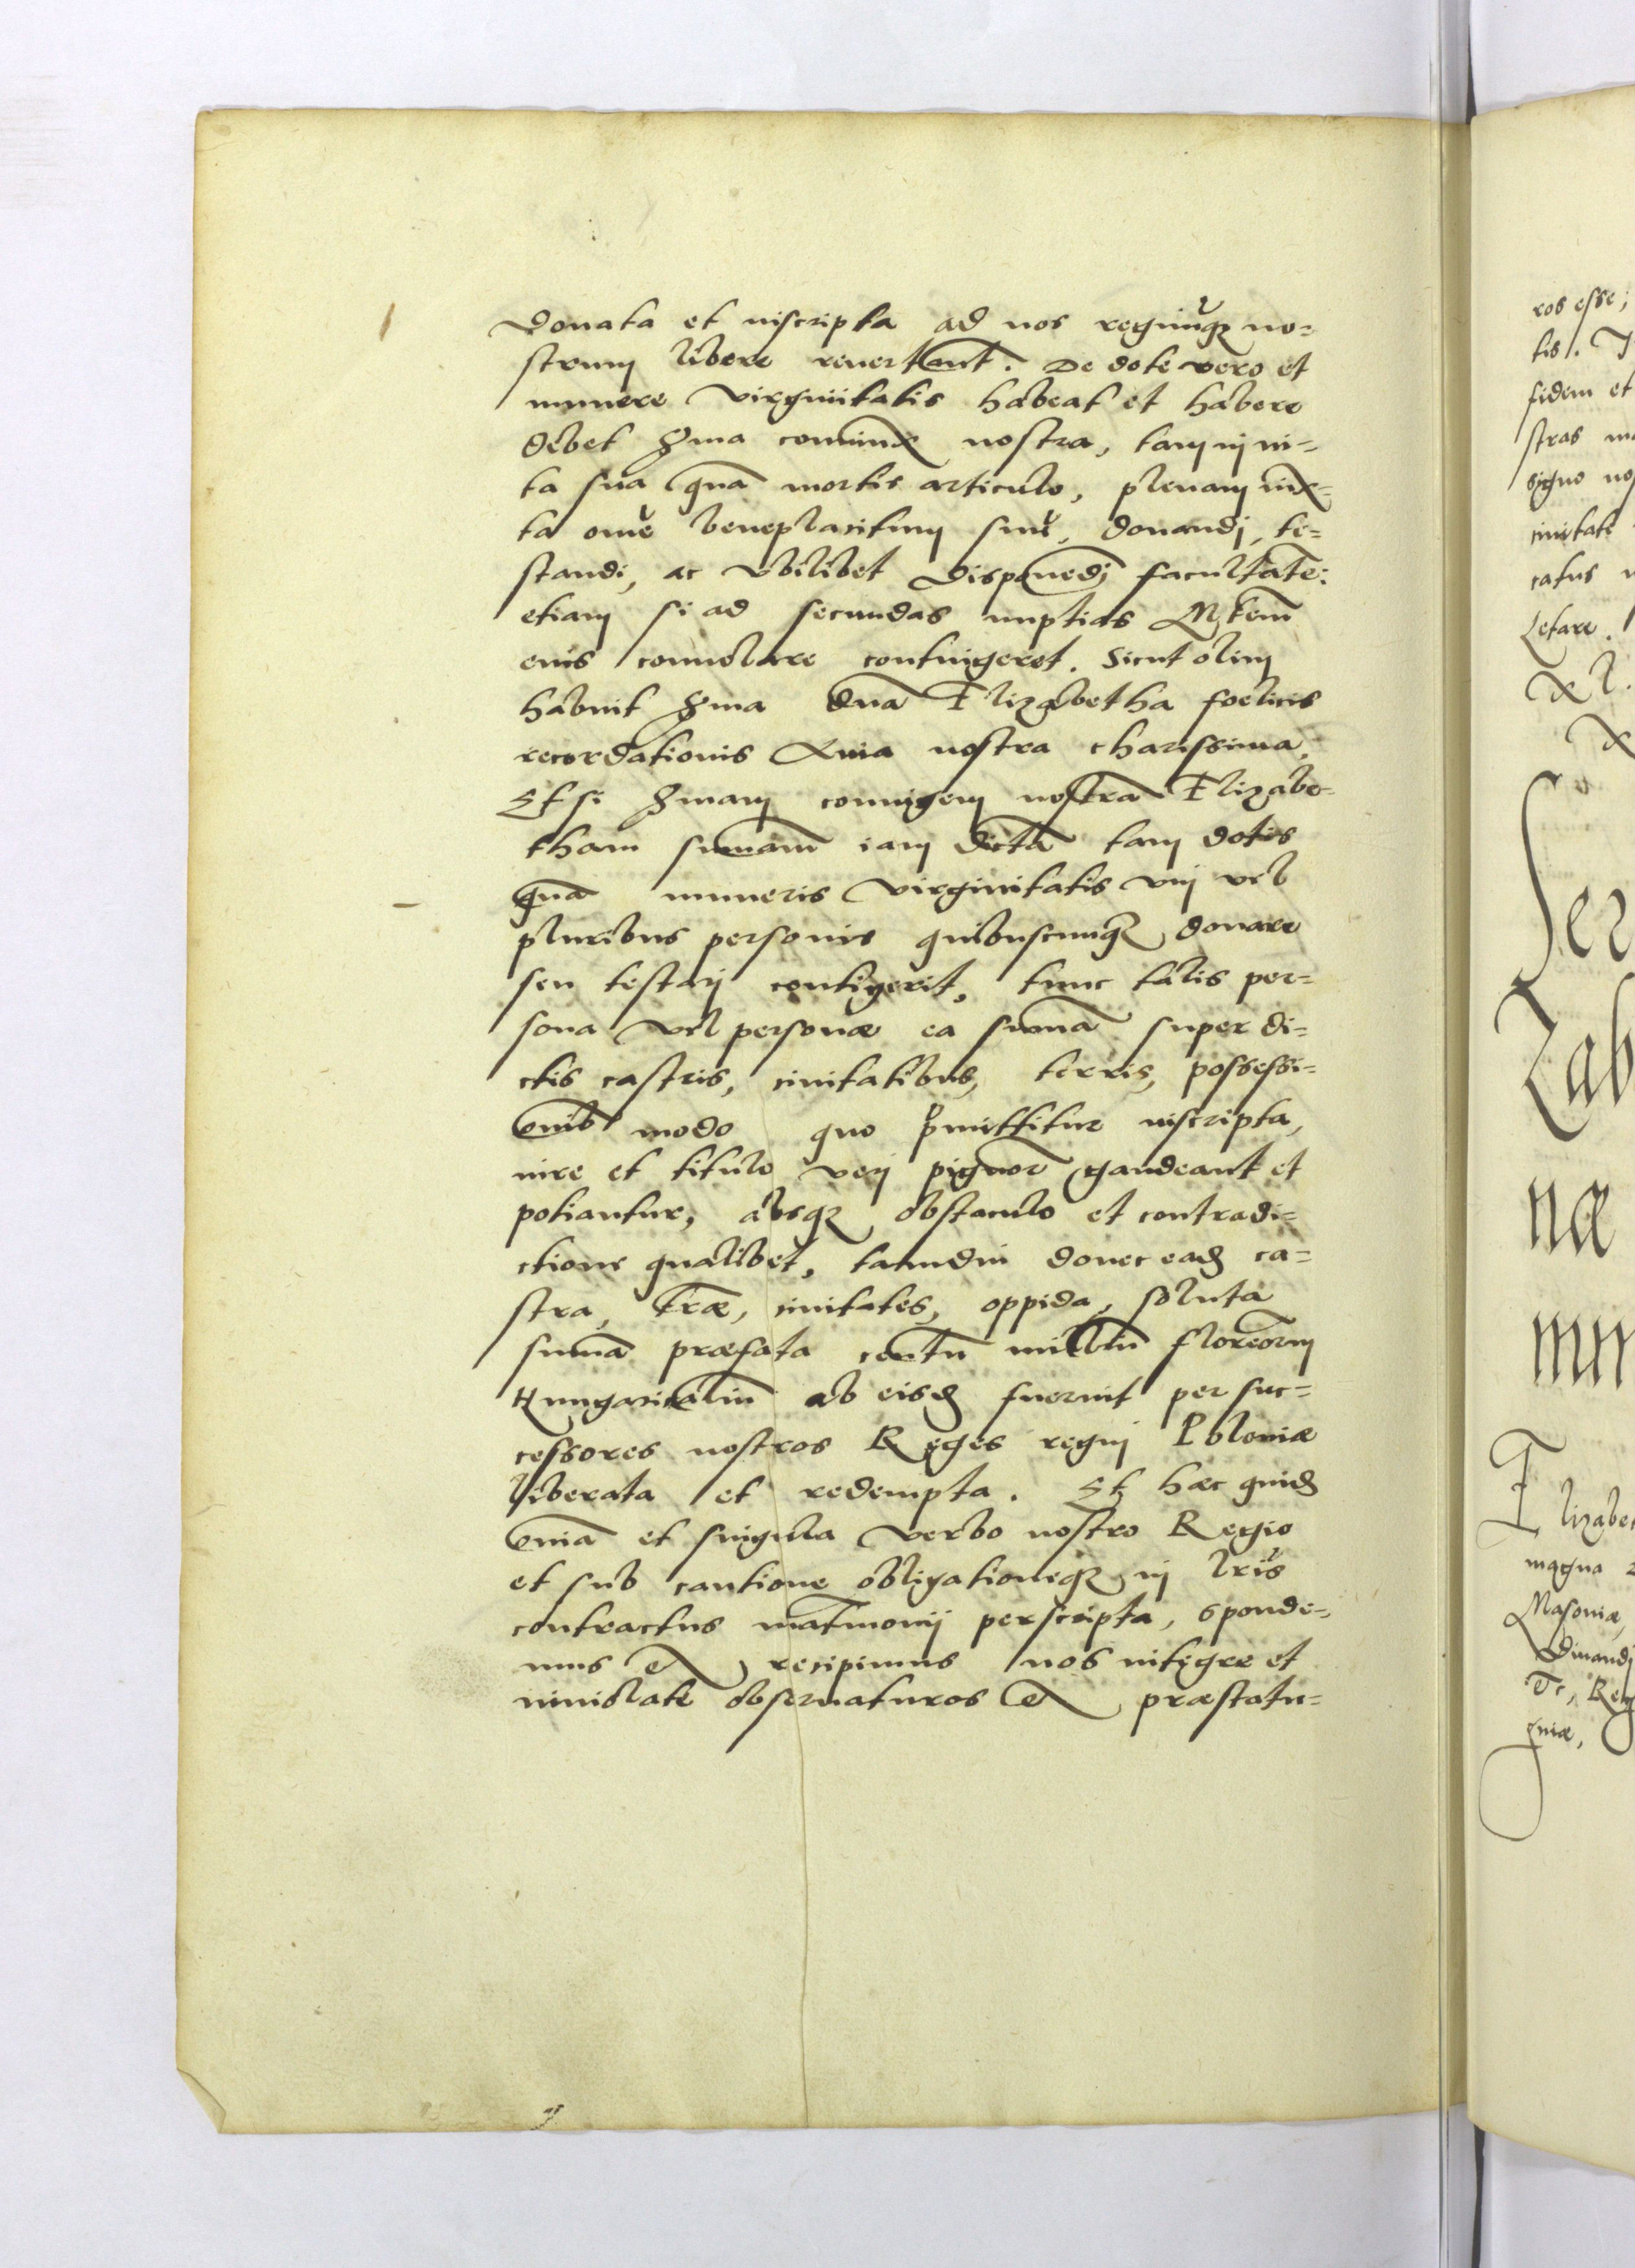 donata et inscripta ad nos regnũqꝫ no=
strum libere reuertant̃. De dote vero et
munere virginitatis habeat et habere
debet Sma coniunx nostra, tam in vi=
ta sua quã mortis articulo, plenam iux=
ta omẽ beneplacitum suũ, donandi, te=
standi, ac vbilibet disponẽdi facultatẽ:
etiam si ad secundas nuptias Mtem̃
eius conuolare contingeret. Sicut olim
habuit Sma dña Elizabetha foelicis
recordationis Auia nostra charissima.
Et si Smam coniugem nostrã Elizabe=
tham summam̃ iam dictã tam dotis
quã muneris virginitatis vni vel
pluribus personis quibuscunqꝫ donare
seu testari contigerit, tunc talis per=
sona vel personæ ea sumã super di=
ctis castris, ciuitatibus, terris, possessi=
onib modo quo p̃mittitur inscripta,
iure et titulo veri pignor̃ gaudeant et
potiantur, absqꝫ obstaculo et contradi=
ctione qualibet, tamdiu donec eadꝫ ca=
stra, terræ, ciuitates, oppida, soluta
sumã præfata centũ milliũ floreorũm
Hungaricaliũ ab eisdꝫ fuerint per suc=
cessores nostros Reges regni Poloniæ
liberata et redempta. Et hæc quidꝫ
omĩa et singula verbo nostro Regio
et sub cautione obligationeqꝫ in lr̃is
contractus mat̃monij perscripta, sponde=
mus et recipimus nos integre et
inuiolate obseruaturos et præstatu=
ros esse;
tis. I
fidem et
stras ma
signo no
ciuitate
catus
Letare.
Ser
Zab
næ
mm
Elizabe
magna
Masoniæ,
Dinandi
Reg